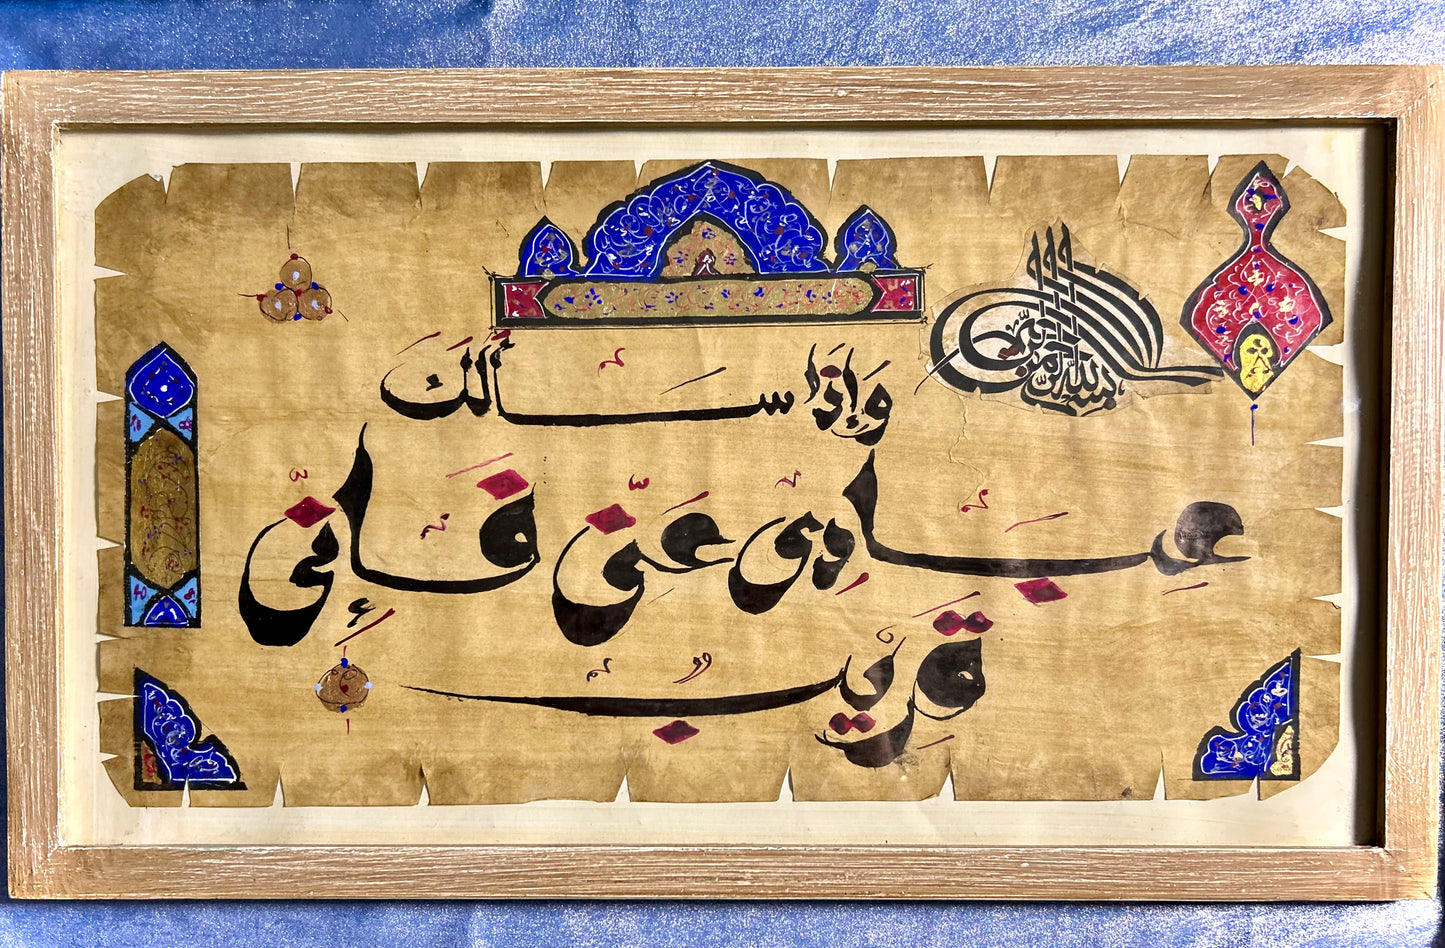 بسم الله الرحمن الرحيم
وَإِذَا سَأَلَكَ
عِبَادِی عَنِّی فَإِنِّی
قَرِیبٌ